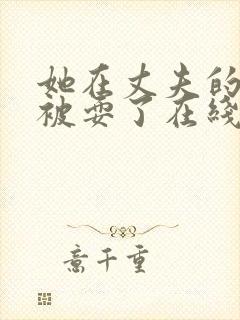 她在丈夫的
被耍了在綫
意千重